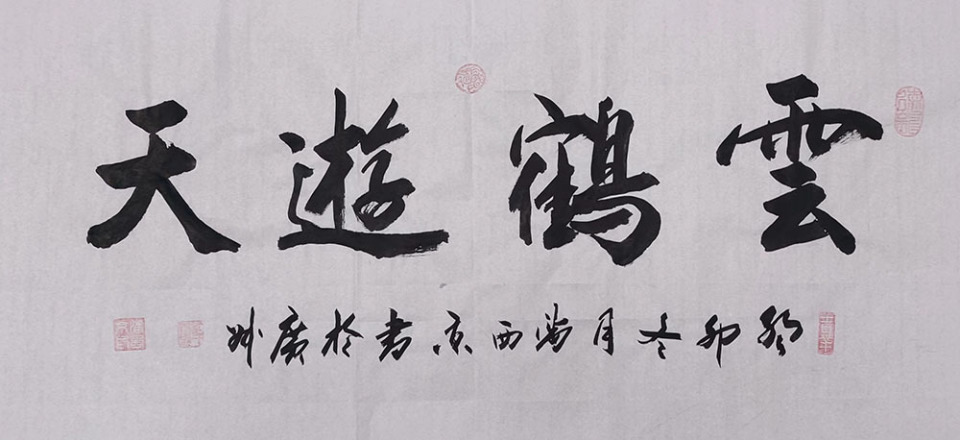 雲鶴遊天
癸卯冬月黄西京書於廣州